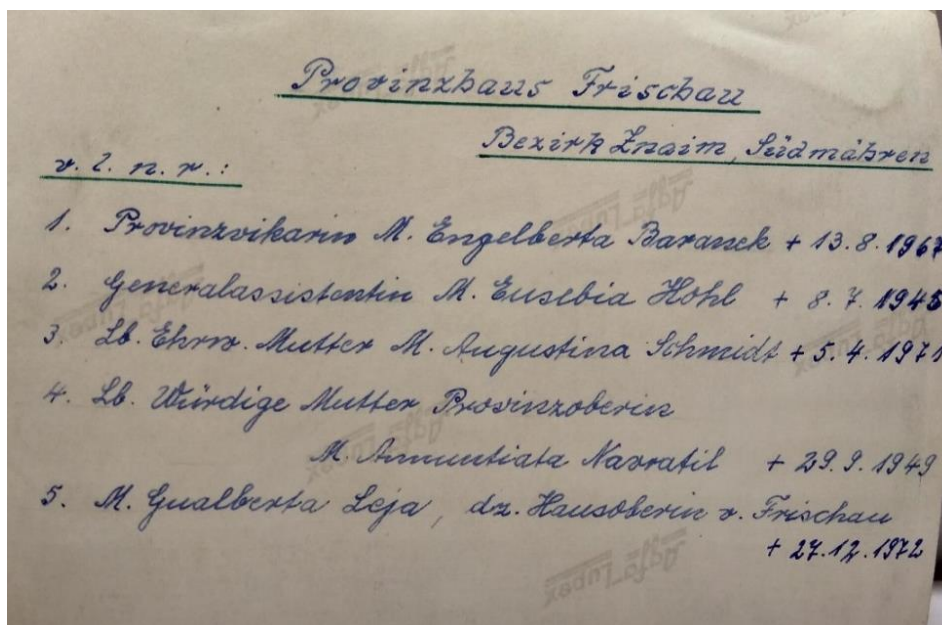 Provinzhaus Frischau
Bezirk Znaim, Südmähren
v. l. n. r.:
1. Provinzvikarin M. Engelberta Baranek + 13.8.1967
2. Generalassistentin M. Eusebia Hohl + 8.7.1945
3. Lb. Ehrw. Mutter M. Augustina Schmidt + 5.4.1971
4. Lb. Würdige Mutter Provinzoberin
M. Annuntiata Navratil + 29.9.1949
5. M. Gualberta Leja, dz. Hausoberin v. Frischau
+ 27.12.1972
Agfa Lupex